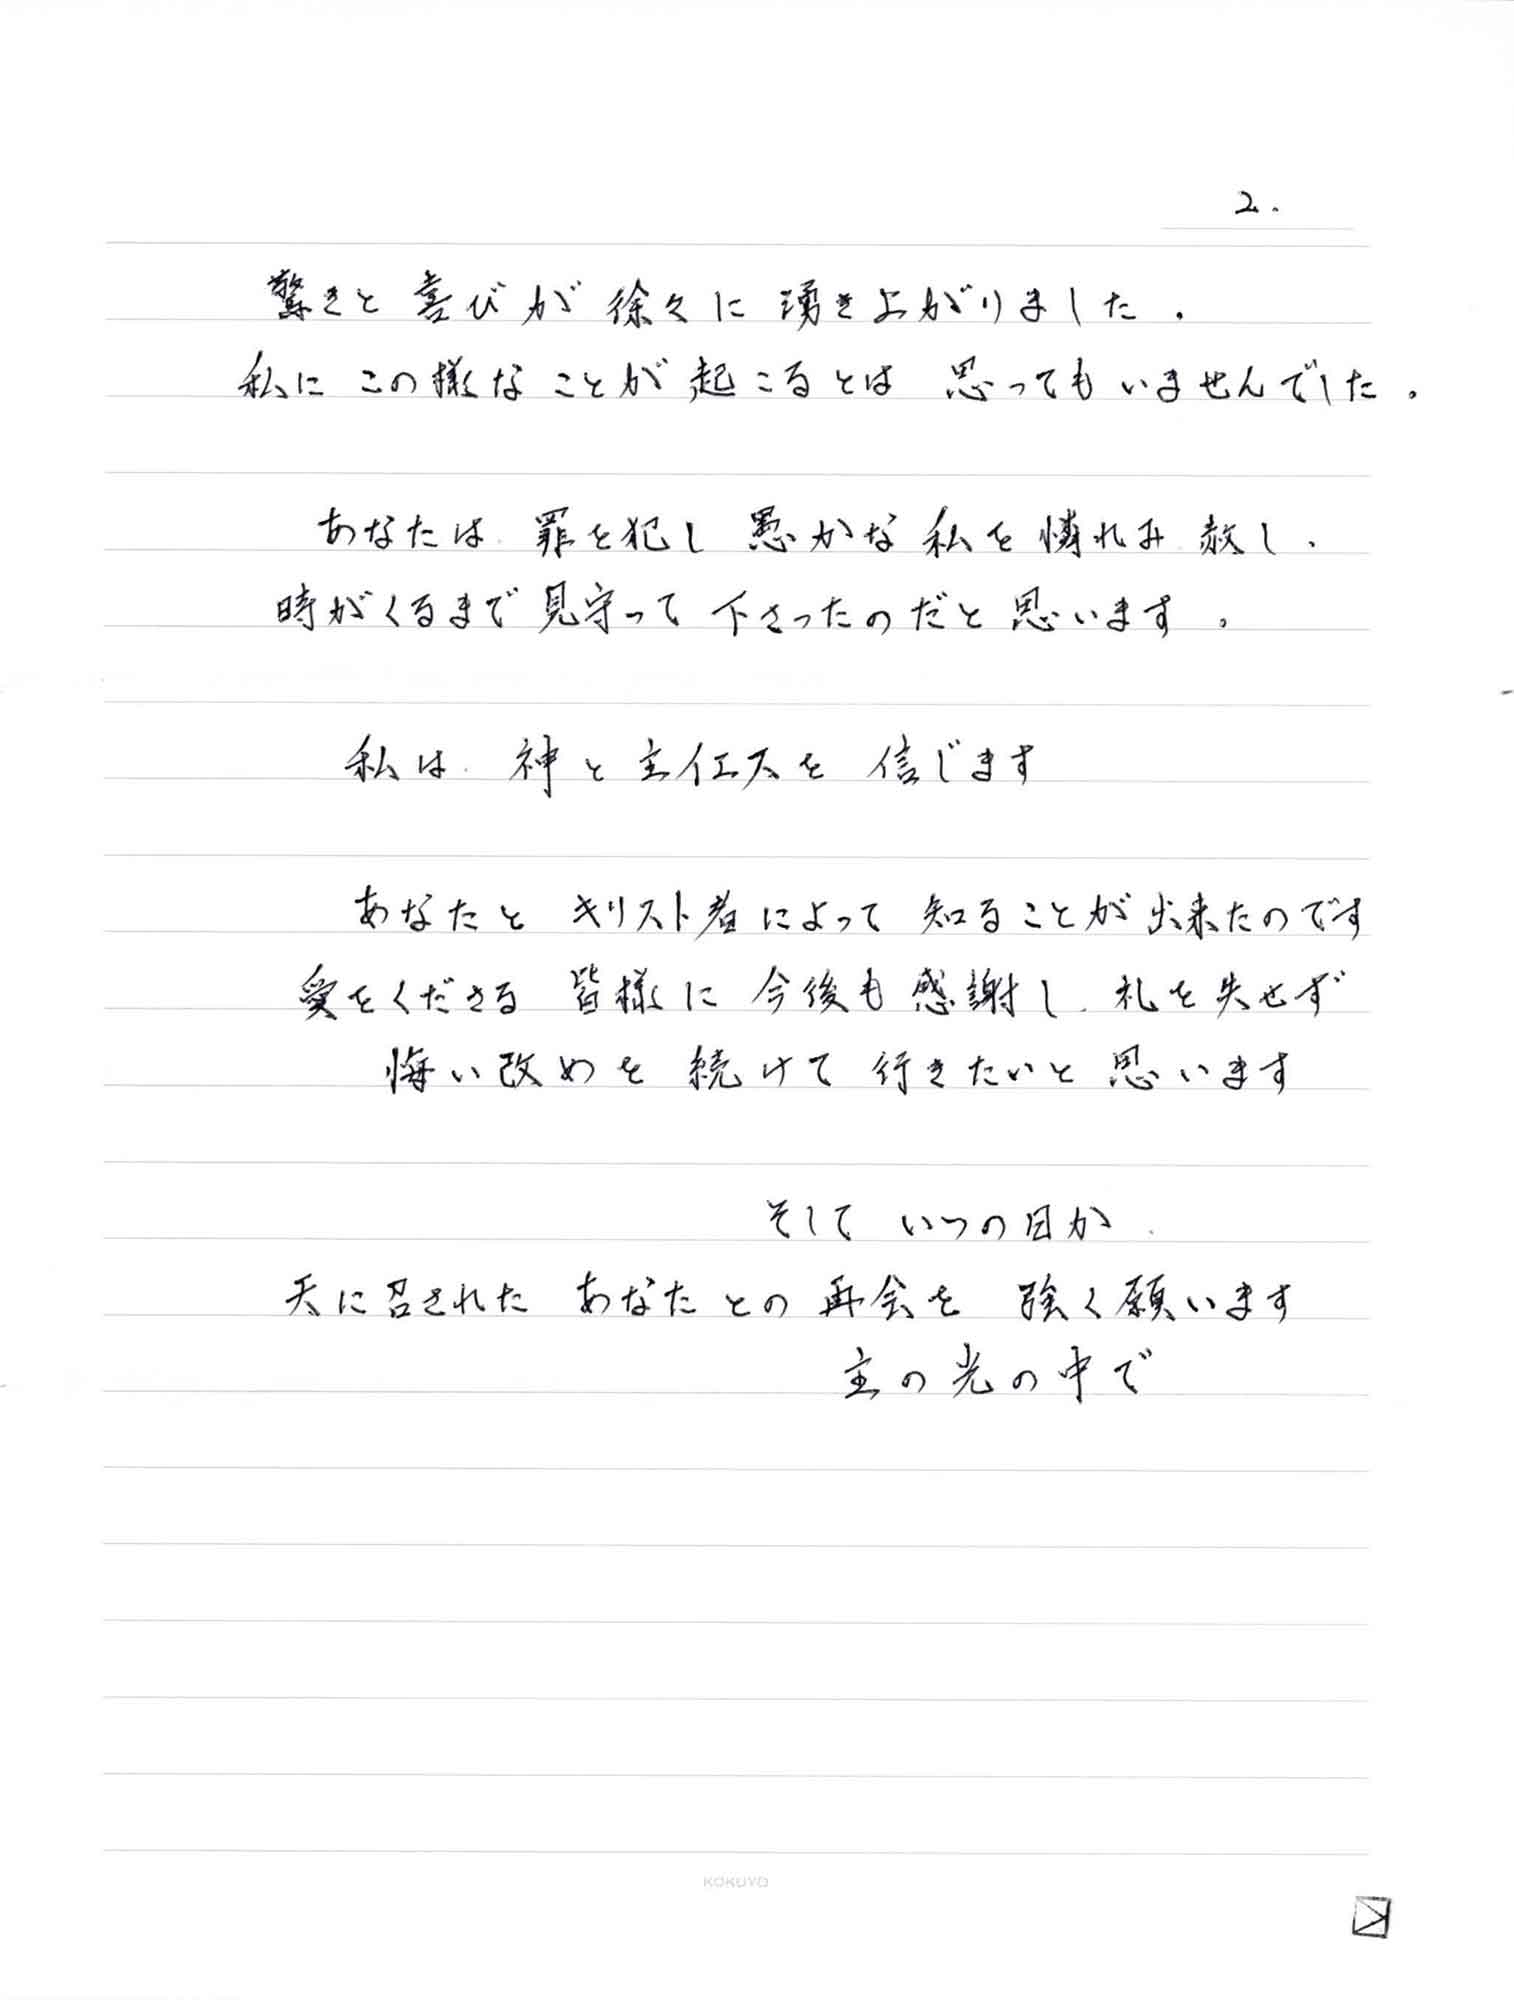 2.
驚きと喜びが徐々に湧き上がりました。
私にこの様なことが起こるとは思ってもいませんでした。
あなたは、罪を犯し愚かな私を憐れみ、赦し、
時がくるまで見守って下さったのだと思います。
私は、神と主イエスを信じます
あなたとキリスト者によって知ることが出来たのです
愛をくださる皆様に今後も感謝し、礼を失せず
悔い改めを続けて行きたいと思います
そしていつの日か、
天に召されたあなたとの再会を強く願います
主の光の中で
KOKUYO